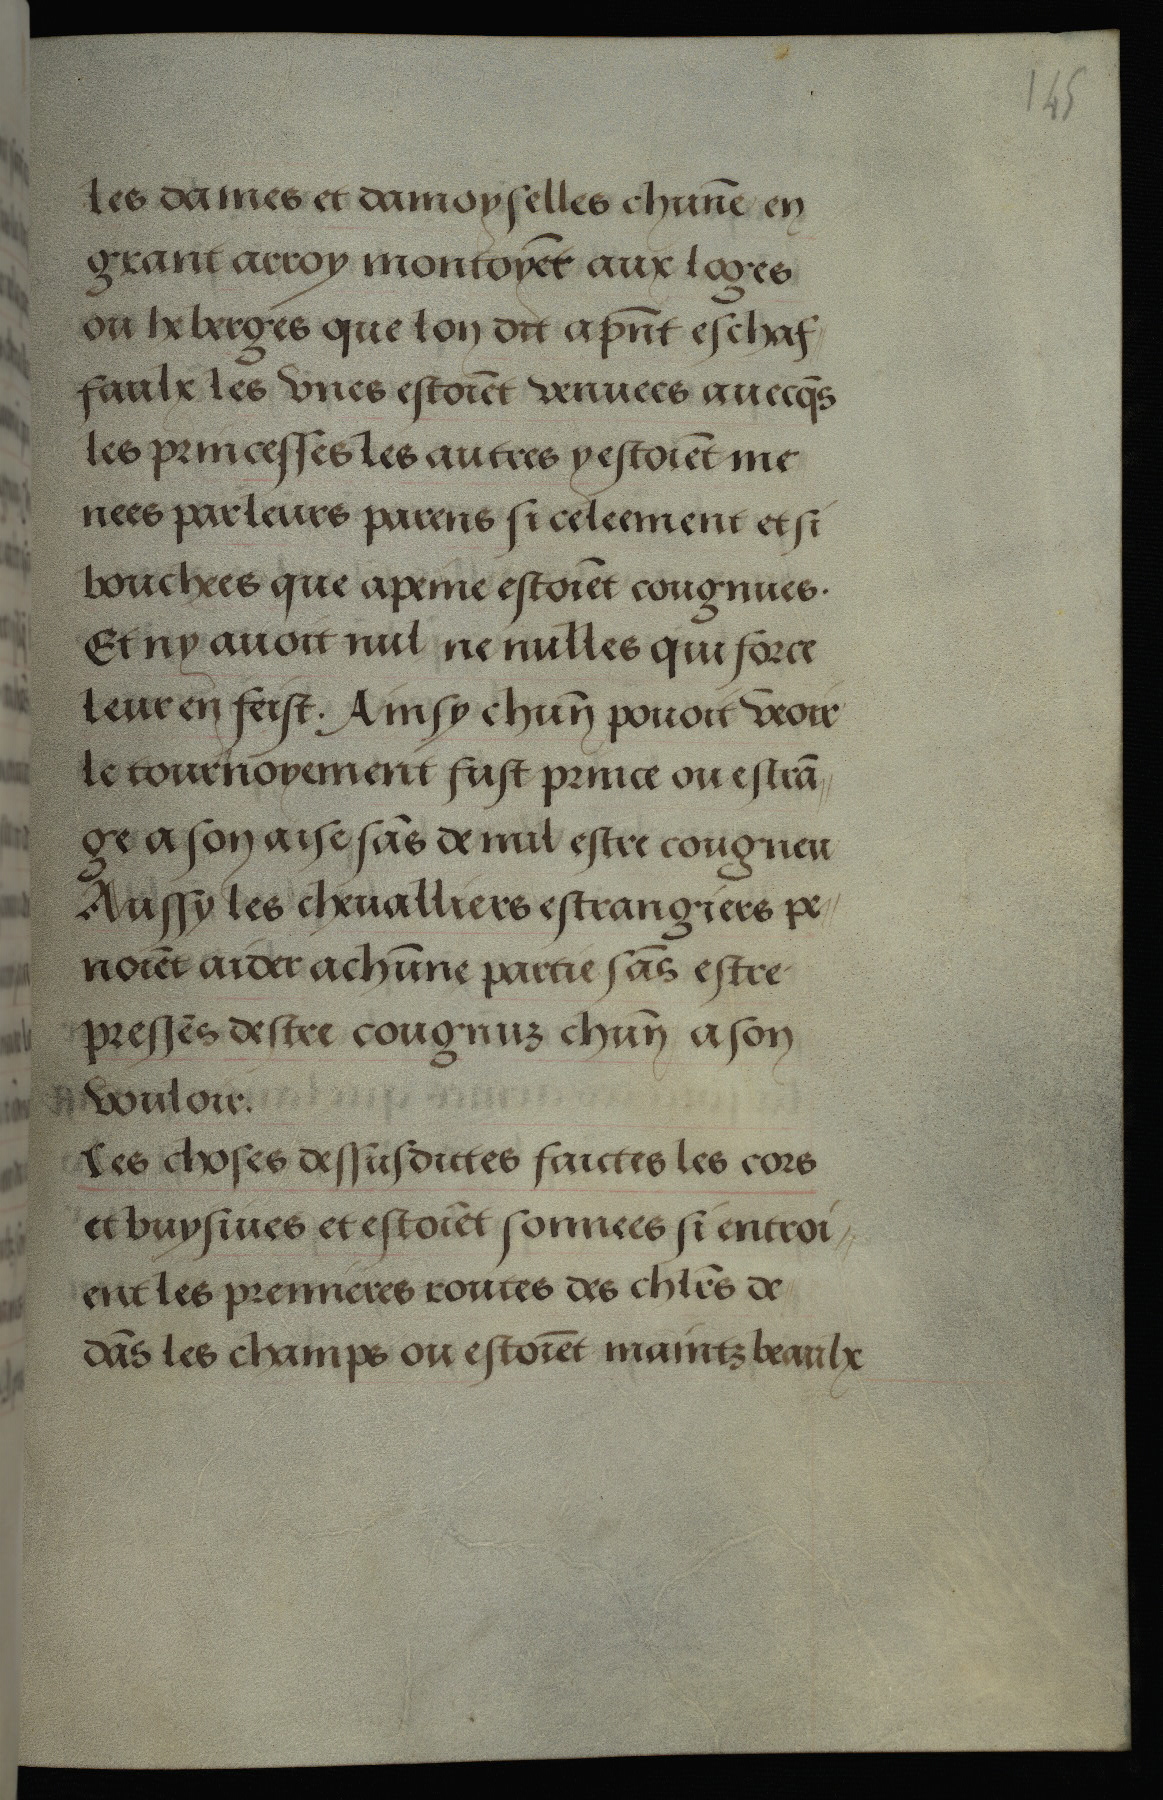 145
les dames et damoyselles chun̄e en
grant arroy montoyēt aux loges
ou heberges que lon dit apn̄t eschaf
faulx les vnes estoiēt venuees auecq̄s
les princesses les autres y estoiēt me
nees par leurs parens si celeement et si
bouchees que apeine estoiēt cougnues.
Et ny auoit nul ne nulles qui force
leur en feist. Ainsy chun̄ pouoit veoir
le tournoyement fust prince ou estrā//
ge a son aise sās de nul estre cougneu
Aussy les cheualliers estrangiers pe//
noiēt aider a chūne partie sās estre
pressēs destre cougnuz chun̄ a son
vouloir.
Les choses dessusdittes faictes les cors
et buysines et estoiēt sonnees si entroi//
ent les premieres routes des chlr̄s de
dās les champs ou estoiēt maintz beaulx